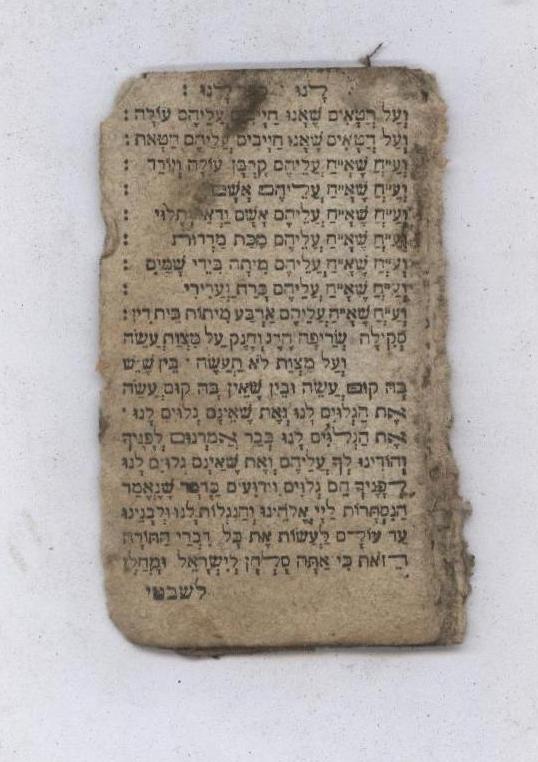 לָנוּ לָנוּ :
וְעַל חֲטָאִים שֶׁאָנוּ חַיָּיבִים עֲלֵיהֶם עוֹלָה :
וְעַל חֲטָאִים שֶׁאָנוּ חַיָּיבִים עֲלֵיהֶם חַטָּאת :
וְעַ״חֲ שֶׁאָ״חַ עֲלֵיהֶם קָרְבָּן עוֹלֶה וְיוֹרֵד :
וְעַ״חֲ שֶׁאָ״חַ עֲלֵיהֶם אָשָׁם :
וְעַ״חֲ שֶׁאָ״חַ עֲלֵיהֶם אָשָׁם וַדַּאי וְתָלוּי :
וְעַ״חֲ שֶׁאָ״חַ עֲלֵיהֶם מַכַּת מַרְדּוּת :
וְעַ״חֲ שֶׁאָ״חַ עֲלֵיהֶם מִיתָה בִּידֵי שָׁמַיִם :
וְעַ״חֲ שֶׁאָ״חַ עֲלֵיהֶם כָּרֵת וַעֲרִירִי :
וְעַ״חֲ שֶׁאָ״חַ עֲלֵיהֶם אַרְבַּע מִיתוֹת בֵּית דִּין :
סְקִילָה שְׂרֵיפָה הֶרֶג וְחֶנֶק עַל מִצְוַת עֲשֵׂה
וְעַל מִצְוַת לֹא תַעֲשֶׂה · בֵּין שֶׁיֵּשׁ
בָּהּ קוּם עֲשֵׂה וּבֵין שֶׁאֵין בָּהּ קוּם עֲשֵׂה
אֶת הַגְּלוּיִם לָנוּ וְאֶת שֶׁאֵינָם גְּלוּיִם לָנוּ ·
אֶת הַגְּלוּיִם לָנוּ כְּבָר אֲמַרְנוּם לְפָנֶיךָ
וְהוֹדִינוּ לְךָ עֲלֵיהֶם וְאֶת שֶׁאֵינָם גְּלוּיִם לָנוּ
לְפָנֶיךָ הֵם גְּלוּיִם וִידוּעִים כַּדָּבָר שֶׁנֶּאֱמַר
הַנִּסְתָּרוֹת לַיְיָ אֱלֹהֵינוּ וְהַנִּגְלוֹת לָנוּ וּלְבָנֵינוּ
עַד עוֹלָם לַעֲשׂוֹת אֶת כָּל דִּבְרֵי הַתּוֹרָה
הַזֹּאת כִּי אַתָּה סָלְחָן לְיִשְׂרָאֵל וּמָחֳלָן
לשבטי